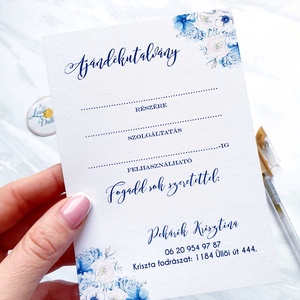 Ajándékutalvány
RÉSZÉRE
SZOLGÁLTATÁS
-IG
FELHASZNÁLHATÓ
Fogadd sok szeretettel:
Pekárik Krisztina
06 20 954 97 87
Kriszta fodrászat: 1184 Üllői út 444.